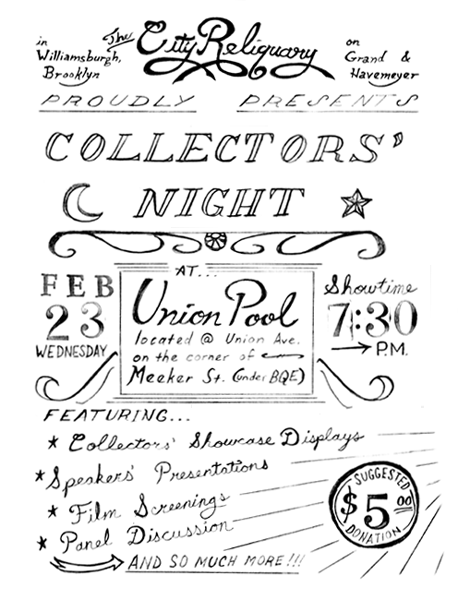 in Williamsburgh, Brooklyn
The City Reliquary
on Grand & Havemeyer
PROUDLY PRESENTS
COLLECTORS'
NIGHT
FEB
23
WEDNESDAY
AT...
Union Pool
located @ Union Ave.
on the corner of
Meeker St. (under BQE)
Showtime
7:30
P.M.
FEATURING...
* Collectors' Showcase Displays
* Speakers' Presentations
* Film Screenings
* Panel Discussion
AND SO MUCH MORE!!!
SUGGESTED
$5.00
DONATION